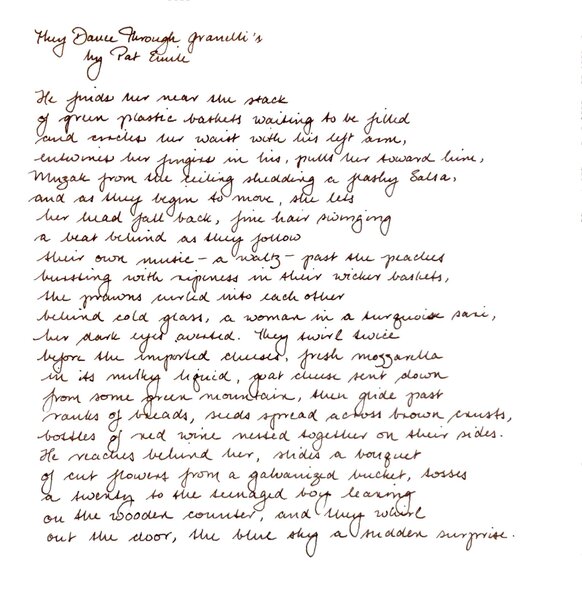 They Dance Through Granelli's
by Pat Emile
He finds her near the stack
of green plastic baskets waiting to be filled
and circles her waist with his left arm,
entwines her fingers in his, pulls her toward him,
Muzak from the ceiling shedding a flashy Salsa,
and as they begin to move, she lets
her head fall back, fine hair swinging
a beat behind as they follow
their own music – a waltz – past the peaches
bursting with ripeness in their wicker baskets,
the prawns curled into each other
behind cold glass, a woman in a turquoise sari,
her dark eyes averted. They twirl twice
before the imported cheeses, fresh mozzarella
in its milky liquid, goat cheese sent down
from some green mountain, then glide past
ranks of breads, seeds spread across brown crusts,
bottles of red wine nested together on their sides.
He reaches behind her, slides a bouquet
of cut flowers from a galvanized bucket, tosses
a twenty to the teenaged boy leaning
on the wooden counter, and they whirl
out the door, the blue sky a sudden surprise.